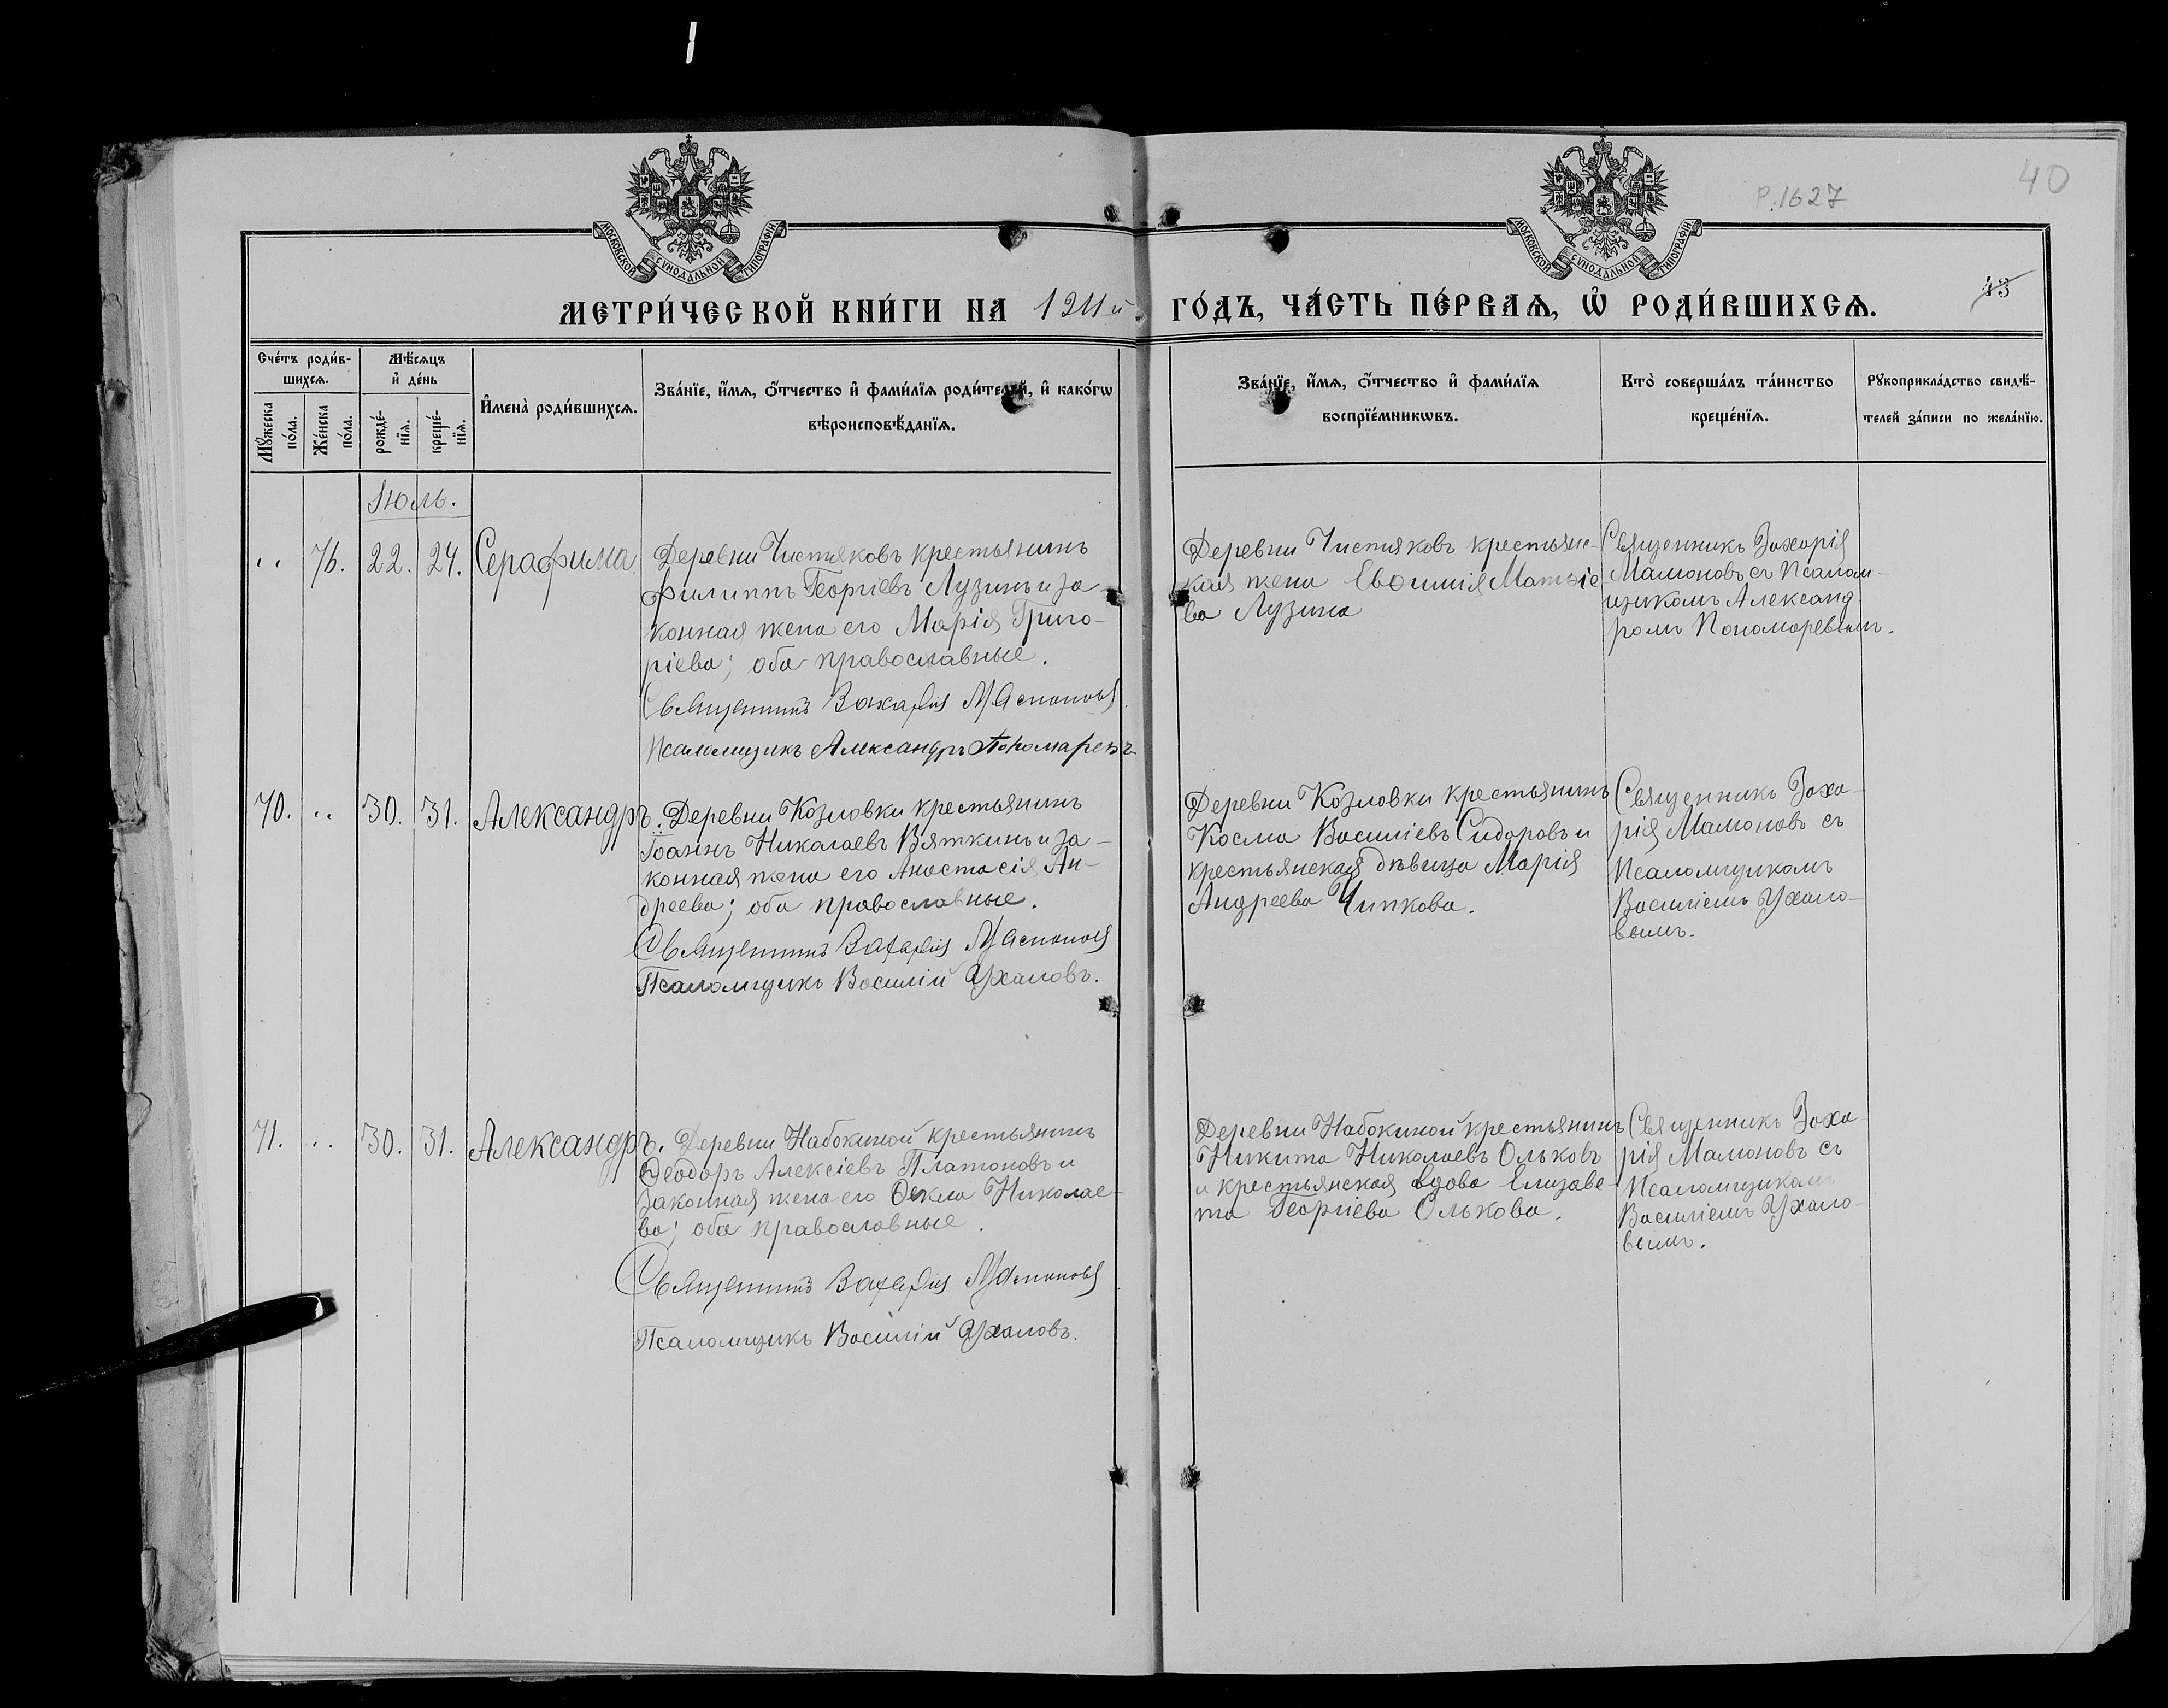 40
Р.1627
МОСКОВСКОЙ СѴНОДАЛЬНОЙ ТИПОГРАФІИ
МОСКОВСКОЙ СѴНОДАЛЬНОЙ ТИПОГРАФІИ
МЕТРИ́ЧЕСКОЙ КНИ́ГИ НА 1911й ГО́ДЪ, ЧА́СТЬ ПЕ́РВАѦ, Ѡ РОДИ́ВШИХСѦ.
43
Сче́тъ роди́в-
шихсѧ.
Мꙋ́жеска по́ла.
Же́нска по́ла.
Мѣ́сѧцъ
и҆ де́нь
рожде́-
нїѧ.
креще́-
нїѧ.
И҆мена̀ роди́вшихсѧ.
Зва́нїе, и҆́мѧ, ѻ҆́тчество и҆ фами́лїѧ роди́телей, и҆ како́гѡ
вѣроисповѣ́данїѧ.
Зва́нїе, и҆́мѧ, ѻ҆́тчество и҆ фами́лїѧ
воспрїе́мникѡвъ.
Кто̀ соверша́лъ та́инство
креще́нїѧ.
Рꙋкоприкла́дство свидѣ́-
телей за́писи по жела́нїю.
Іюль.
.. 76. 22. 24. Серафима
Деревни Чистяковъ крестьянинъ
Филиппъ Георгіевъ Лузинъ и за-
конная жена его Марія Григо-
ріева; оба православные.
Священникъ Захарія Мамоновъ
Псаломщикъ Александръ Пономаревъ
Деревни Чистяковъ крестьянс-
кая жена Евѳимія Матѳіе
ва Лузина
Священникъ Захарія
Мамоновъ съ Псалом-
щикомъ Александ
ромъ Пономаревымъ.
70. .. 30. 31. Александръ.
Деревни Козловки крестьянинъ
Іоаннъ Николаевъ Вяткинъ и за-
конная жена его Анастасія Ан-
дреева; оба православные.
Священникъ Захарія Мамоновъ
Псаломщикъ Василій Ухаловъ.
Деревни Козловки крестьянинъ
Косма Василіевъ Сидоровъ и
крестьянская дѣвица Марія
Андреева Чипкова.
Священникъ Заха-
рія Мамоновъ съ
Псаломщикомъ
Василіемъ Ухало-
вымъ.
71. .. 30. 31. Александръ.
Деревни Набокиной крестьянинъ
Ѳеодоръ Алексіевъ Платоновъ и
законная жена его Ѳекла Николае-
ва; оба православные.
Священникъ Захарія Мамоновъ
Псаломщикъ Василій Ухаловъ.
Деревни Набокиной крестьянинъ
Никита Николаевъ Ольковъ
и крестьянская вдова Елизаве-
та Георгіева Олькова.
Священникъ Заха
рія Мамоновъ съ
Псаломщикомъ
Василіемъ Ухало-
вымъ.